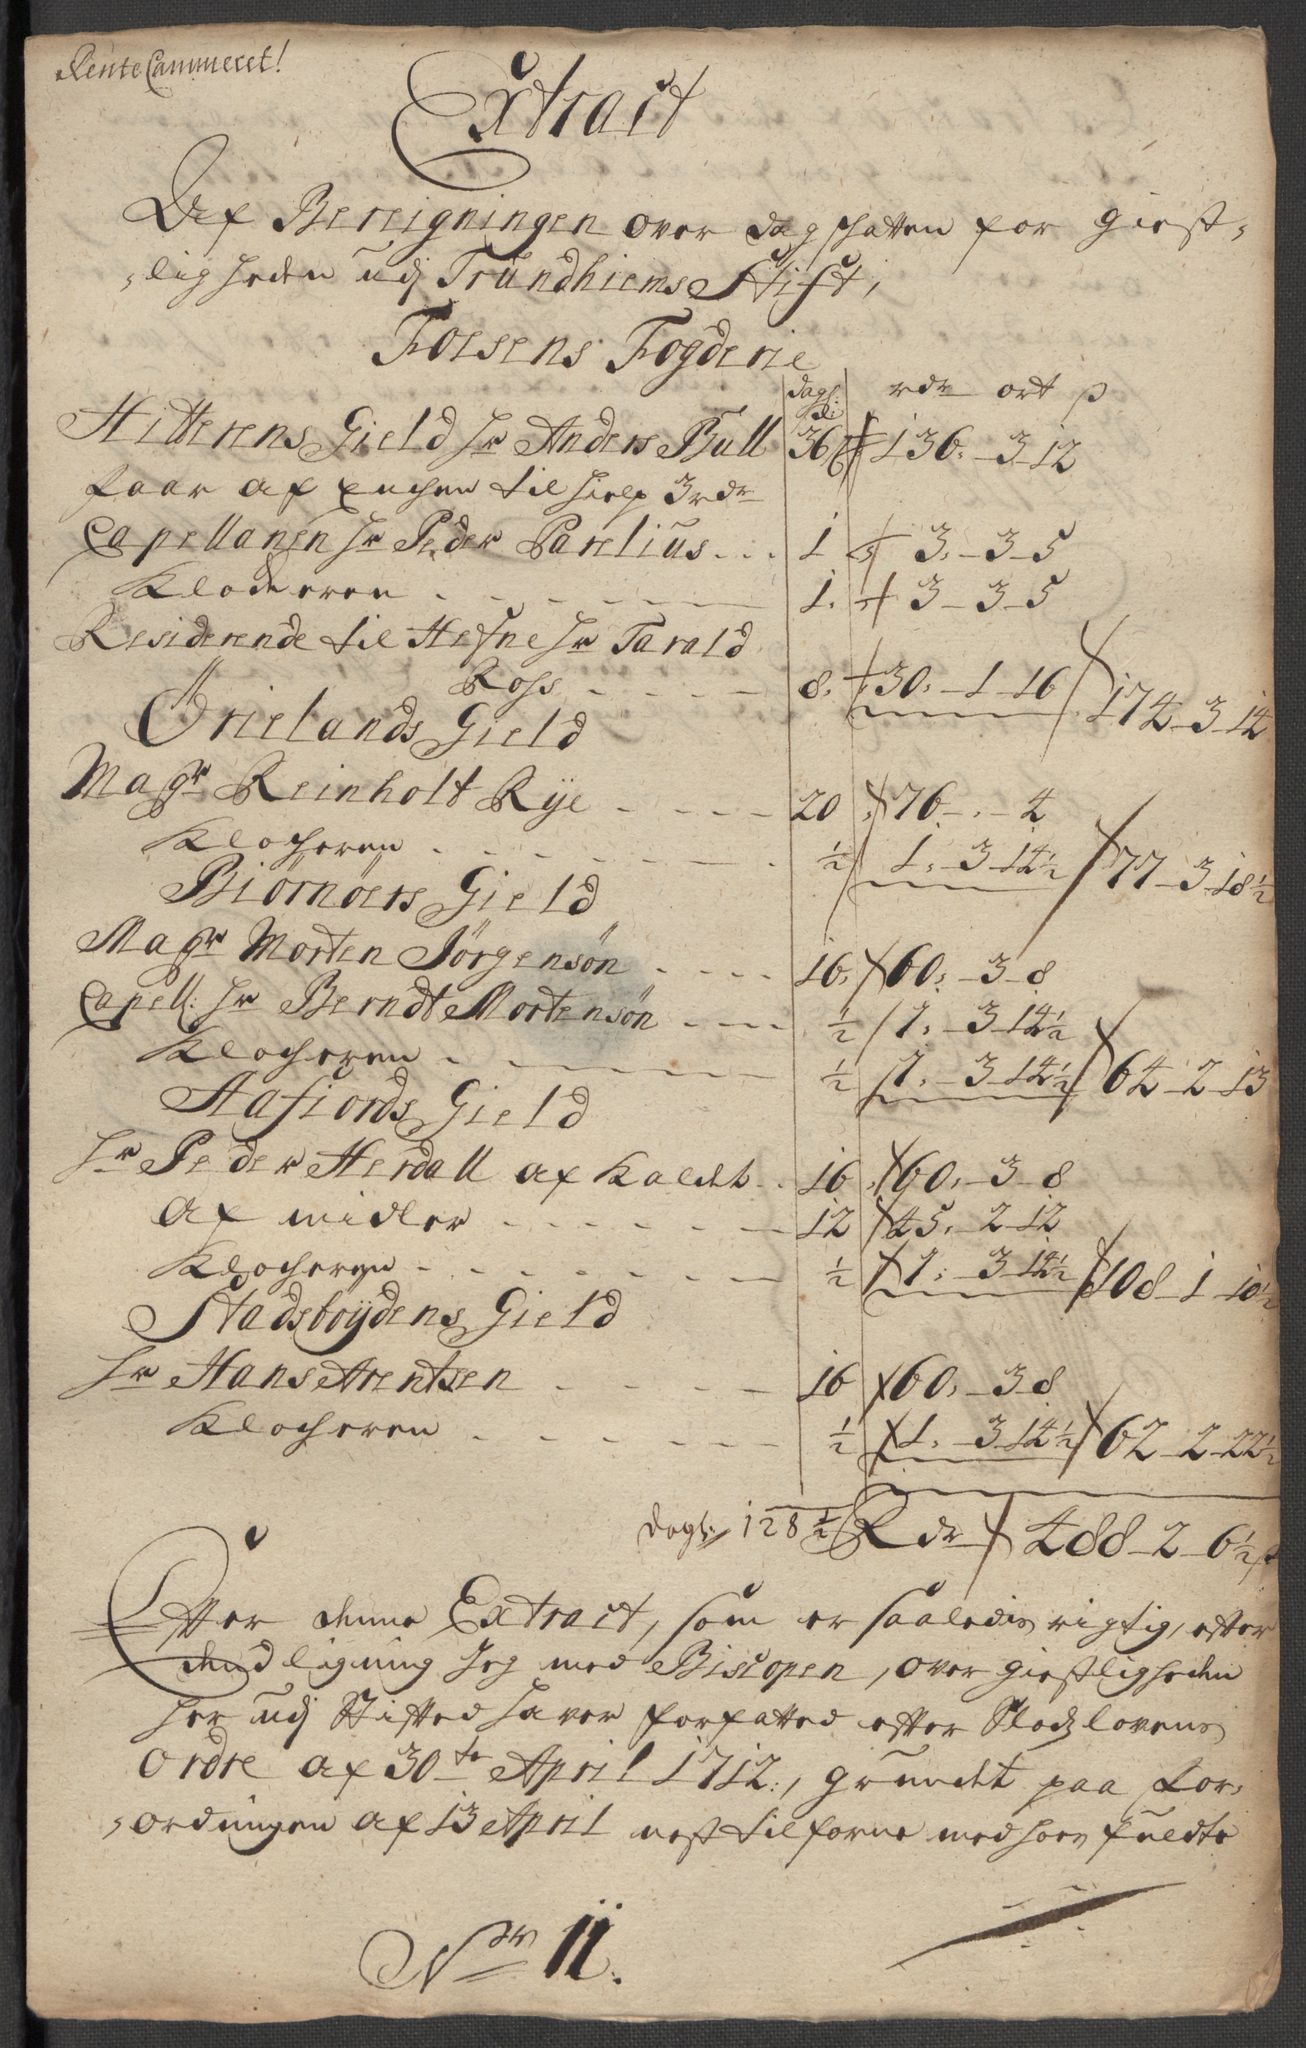 RenteCammeret!
Extract
Af Bereigningen over dagskatten for giest-
-ligheden udj Trundhiems Stift,
Fosens Fogderie
dagl: rdr ort s
Hitterens Gield Hr Anders Bull 36 136. 3 12
faar af Enchen til hielp 3 rdr
Capellanen Hr Peder Parelius 1 3. 3 5
Klocheren 1. 3 3 5
Residerende til Hefne Hr Tarald
Ross 8. 30. 1 16 174 3 14
Ørielands Gield
Magr Reinholt Rye 20 76 . 4
Klocheren ½ 1. 3 14½ 77 3 18½
Biørnøers Gield
Magr Morten Jörgensön 16. 60. 3 8
Capell: Hr Berndt Mortensön ½ 1. 3 14½
Klocheren ½ 1. 3 14½ 64 2 13
Aafiords Gield
Hr Peder Herdall af Kaldet 16 60. 3 8
af midler 12 45. 2 12
Klocheren ½ 1. 3 14½ 108 1 10½
Stadsboydens Gield
Hr Hans Arentsen 16 60. 3 8
Klocheren ½ 1. 3 14½ 62 2 22½
dagl: 128½ Rdr 488 2 6½ s
Efter denne Extract, som er saaledis rigtig, efter
dend ligning Jeg med Biscopen, over giestligheden
her udj Stifted haver forfatted efter Slodzlovens
Ordre af 30te April 1712., grundet paa for-
-ordningen af 13 April nest tilforne med hoes fuldte
Nr 11.